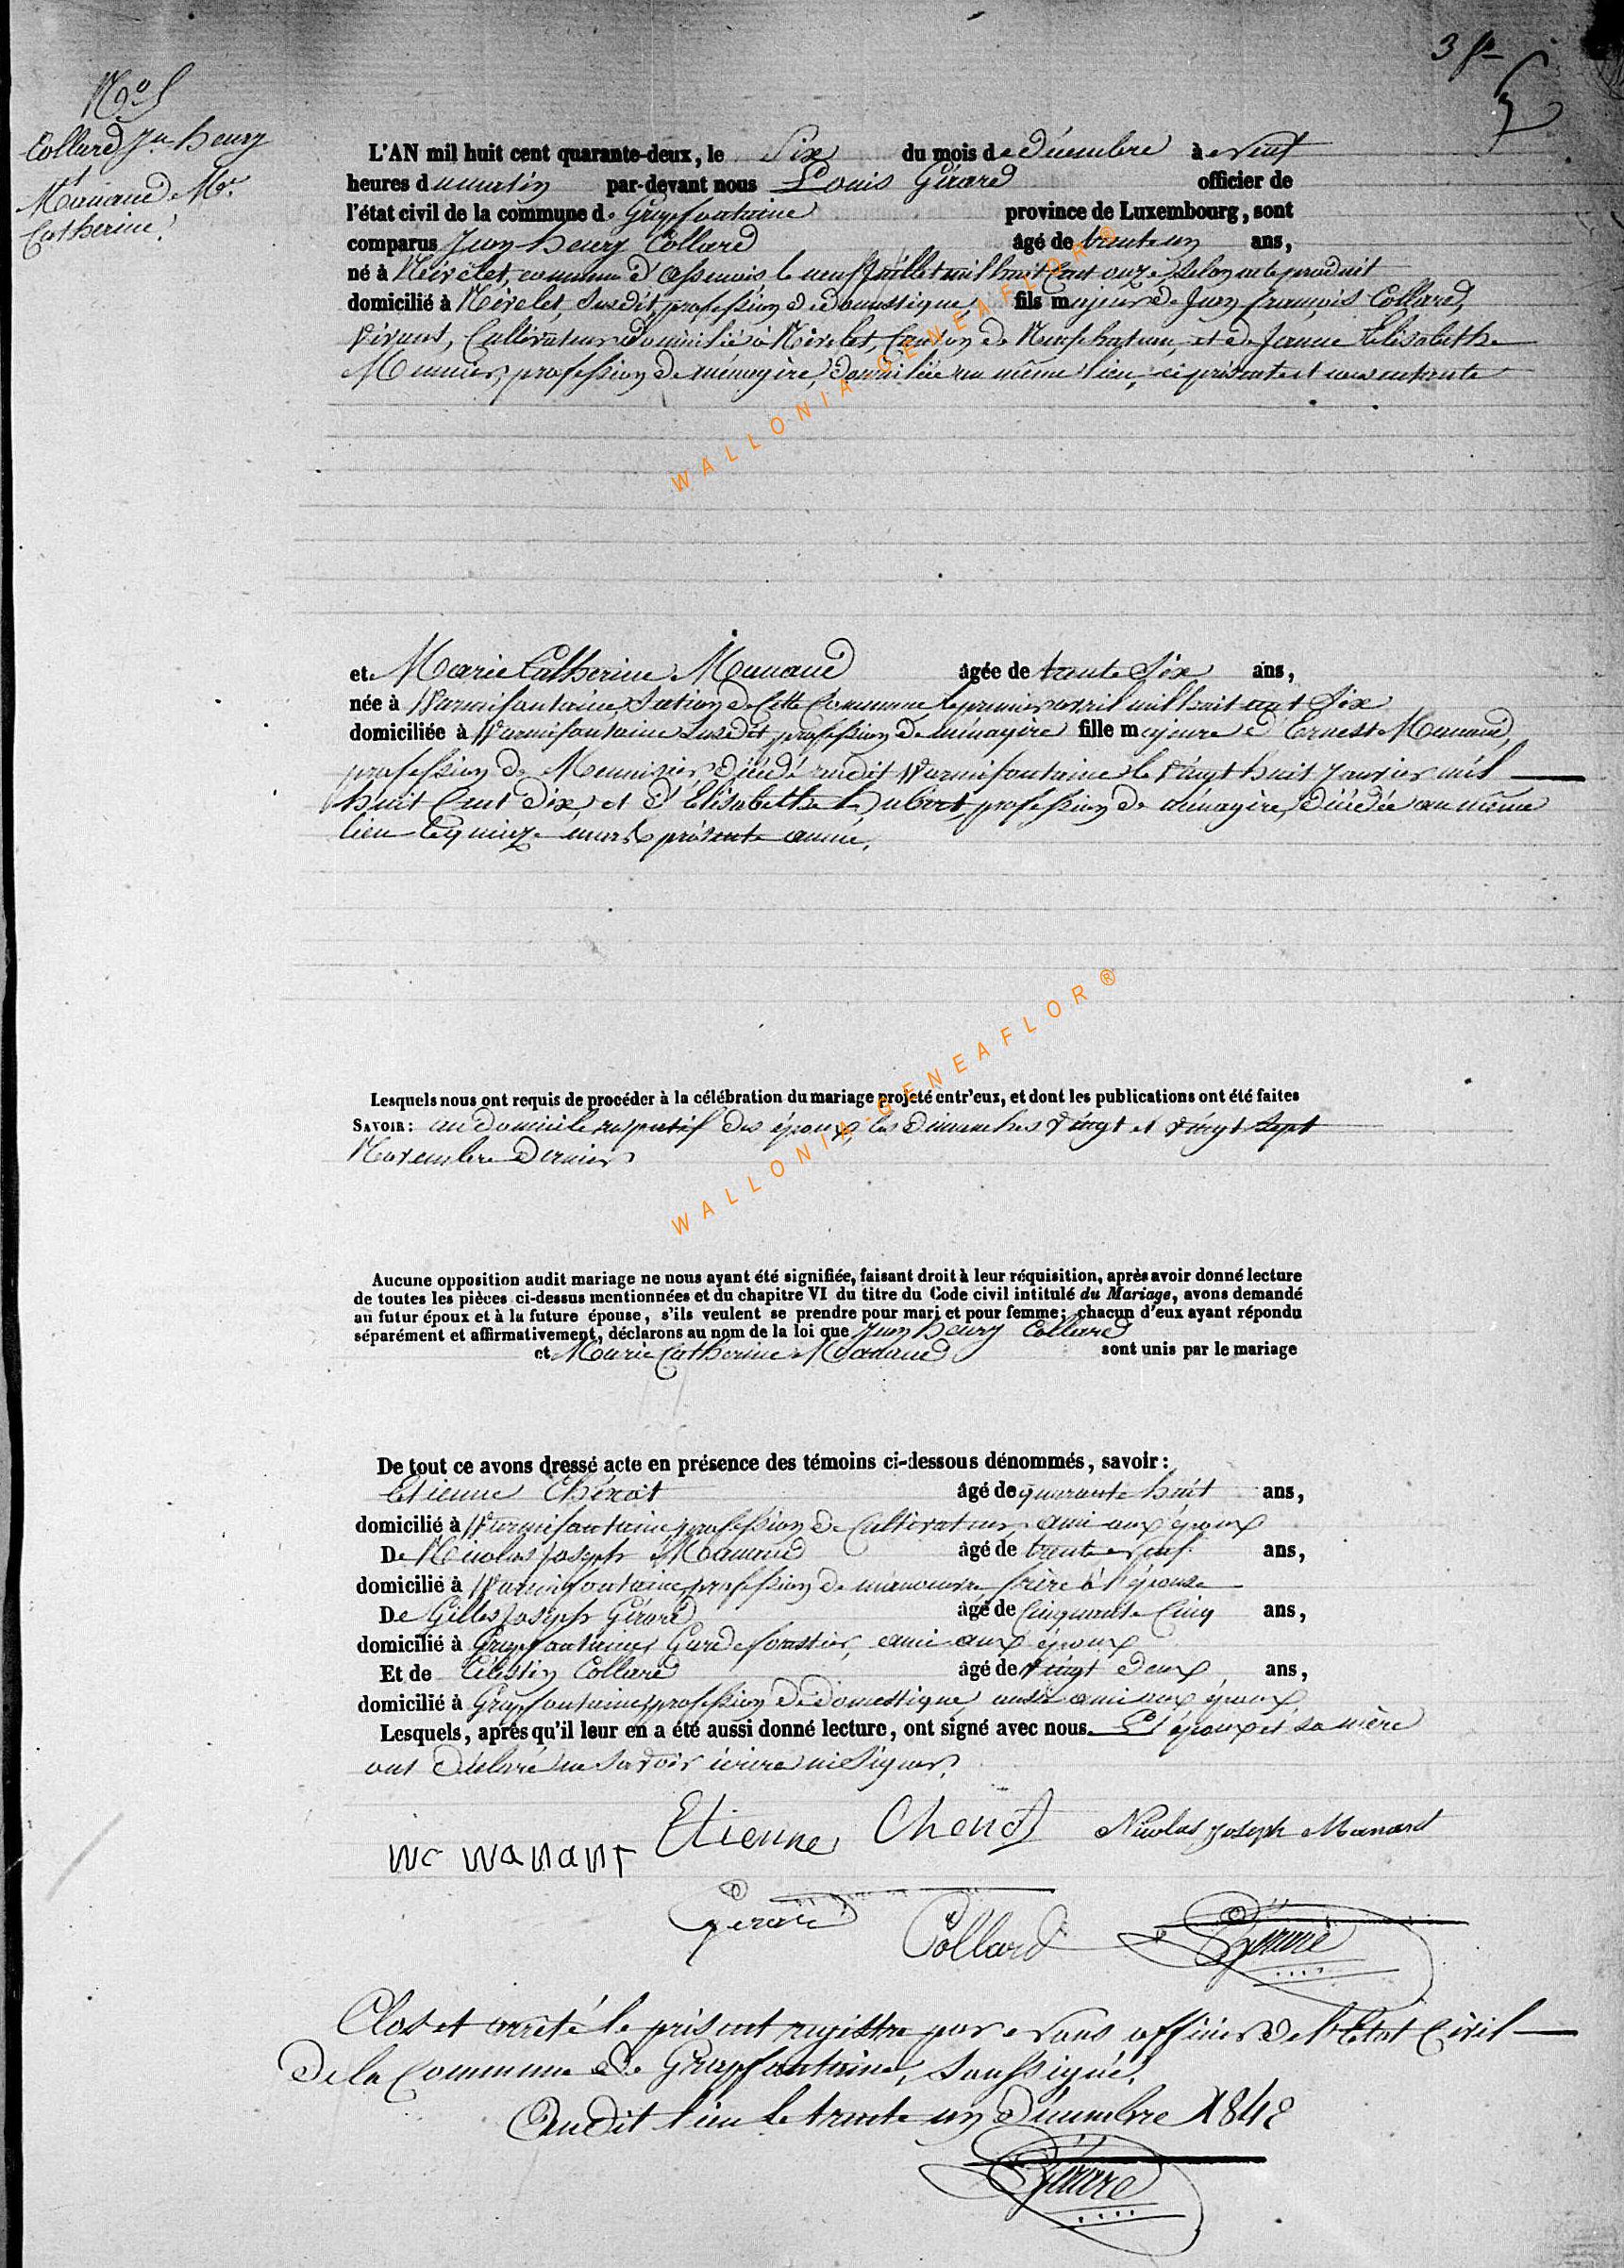 3 f
N° 5
Collard Jn henry
et
Manand Me.
Catherine.
L'AN mil huit cent quarante-deux, le Six du mois de décembre à neuf
heures du matin par-devant nous Louis Gérard officier de
l'état civil de la commune de Grapfontaine province de Luxembourg, sont
comparus Jean henry Collard âgé de trente un ans,
né à Nivelet, commune d'assenois, le neuf Juillet mil huit Cent onze, Selon acte produit
domicilié à Nivelet Susdit, profession de domestique, fils majeur de Jean françois Collard,
vivant, Cultivateur domicilié à Nivelet, Canton de Neufchateau, et de Jeanne Elisabethe
Meunier, profession de ménagère, domiciliée au même lieu, ci présente et consentante
et Marie Catherine Manand âgée de trente Six ans,
née à Warmifontaine, Section de Cette Commune le premier avril mil huit cent Six
domiciliée à Warmifontaine Susdit, profession de ménagère fille majeure d'Ernest Manand,
profession de Menuisier, décédé audit Warmifontaine le vingt huit Janvier mil
huit Cent dix, et d'Elisabethe hubert, profession de ménagère, décédée au même
lieu le quinze mars présente année.
Lesquels nous ont requis de procéder à la célébration du mariage projeté entr'eux, et dont les publications ont été faites
SAVOIR: au domicile respectif des époux, les dimanches vingt et vingt Sept
Novembre dernier
Aucune opposition audit mariage ne nous ayant été signifiée, faisant droit à leur réquisition, après avoir donné lecture
de toutes les pièces ci-dessus mentionnées et du chapitre VI du titre du Code civil intitulé du Mariage, avons demandé
au futur époux et à la future épouse, s'ils veulent se prendre pour mari et pour femme; chacun d'eux ayant répondu
séparément et affirmativement, déclarons au nom de la loi que Jean henry Collard
et Marie Catherine Manand sont unis par le mariage
De tout ce avons dressé acte en présence des témoins ci-dessous dénommés, savoir:
Etienne Chénot âgé de quarante huit ans,
domicilié à Warmifontaine, profession de Cultivateur, ami aux époux
De Nicolas Joseph Manand âgé de trente neuf ans,
domicilié à Warmifontaine, profession de manoeuvre, frère à l'épouse
De Gilles Joseph Gérard âgé de Cinquante Cinq ans,
domicilié à Grapfontaine, Garde forestier, ami aux époux
Et de Célestin Collard âgé de vingt deux ans,
domicilié à Grapfontaine, profession de domestique, aussi ami aux époux
Lesquels, après qu'il leur en a été aussi donné lecture, ont signé avec nous. L'époux et sa mère
ont déclaré ne Savoir écrire ni Signer.
mc manant Etienne Chenot Nicolas Joseph Manand
Gerard Collard Gérard
Clos et arrêté le présent registre par nous officier de l'Etat Civil
de la Commune de Grapfontaine, Soussigné.
Audit lieu le trente un décembre 1842
Gérard
WALLONIA-GENEAFLOR®
WALLONIA-GENEAFLOR®